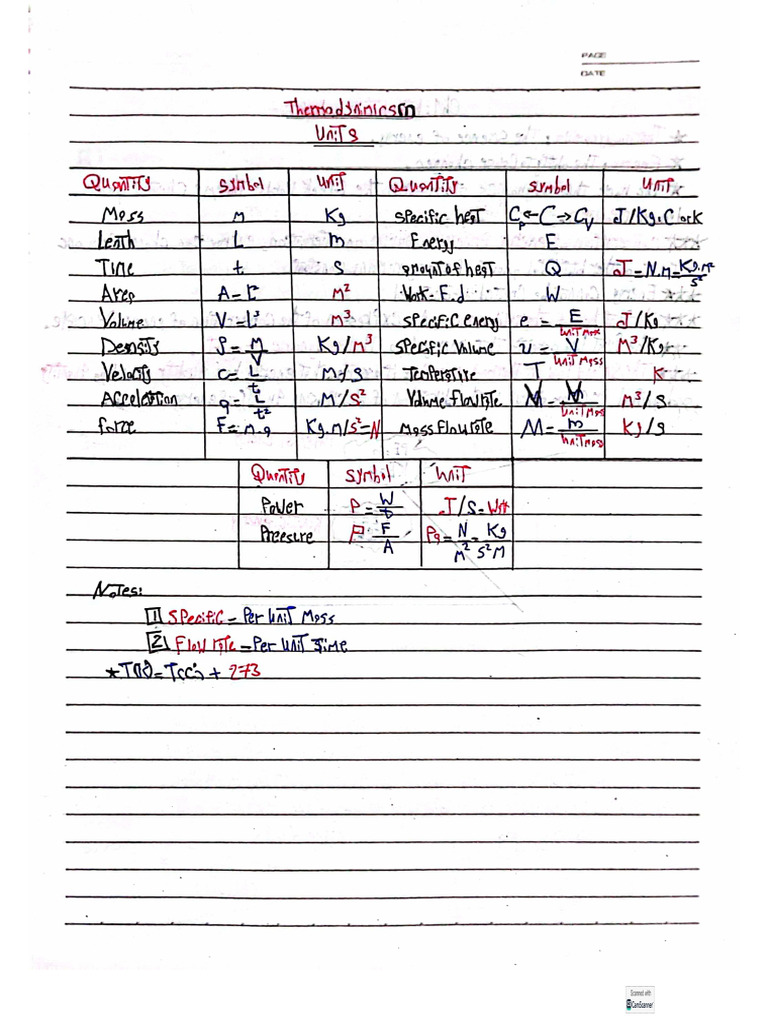 PAGE
DATE
Thermodynimics (1)
Units
Quantity Symbol Unit Quantity Symbol Unit
Mass m Kg Specific heat Cp ← C → Cv J/Kg.C or K
Lenth L m Energy E
Time t s amount of heat Q J = N.m = Kg.m²/s²
Area A = L² m² Work = F.d W
Volume V = L³ m³ Specific energy e = E/unit mass J/Kg
Density ρ = m/V Kg/m³ Specific Volume v = V/unit mass m³/Kg
Velocity c = L/t m/s Temperature T K
Acceleration a = L/t² m/s² Volume flow rate m³/s
force F = m.a Kg.m/s² = N mass flow rate M = m/unit mass Kg/s
Quantity Symbol Unit
Power P = W/t J/s = Watt
Preesure P = F/A Pa = N/m² = Kg/s²m
Notes:
1 Specific = Per unit mass
2 Flow rate = Per unit time
* T(K) = T(C°) + 273
Scanned with
CamScanner